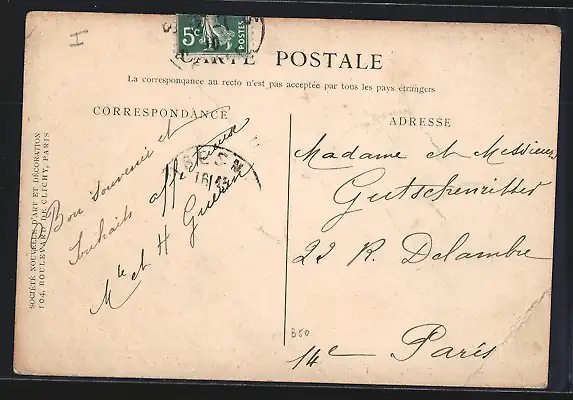 H
5c POSTES
CARTE POSTALE
La correspondance au recto n'est pas acceptée par tous les pays étrangers
CORRESPONDANCE
ADRESSE
SOCIÉTÉ NOUVELLE D'ART ET DÉCORATION
104, BOULEVARD DE CLICHY, PARIS
Bon souvenir et
souhaits affectueux
Mle et H Guérin
16/35
Madame et Messieurs
Gutschenritter
22 R. Delambre
14e Paris
B50